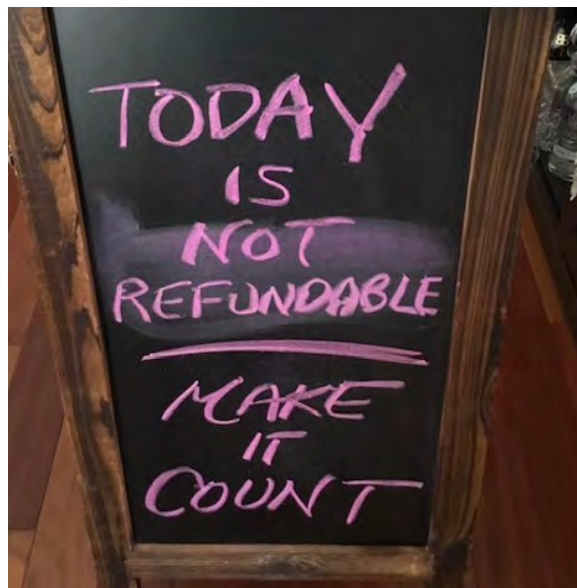 TODAY
IS
NOT
REFUNDABLE
MAKE
IT
COUNT